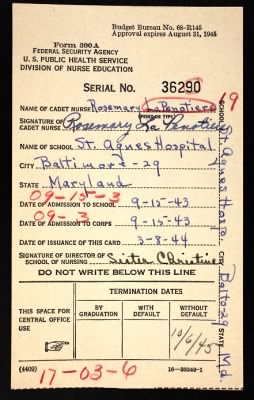 Budget Bureau No. 68-R145
Approval expires August 31, 1945
Form 300A
FEDERAL SECURITY AGENCY
U. S. PUBLIC HEALTH SERVICE
DIVISION OF NURSE EDUCATION
SERIAL No. 36290
NAME OF CADET NURSE Rosemary LaPenotiere 19
(PRINT OR TYPE)
SIGNATURE OF CADET NURSE Rosemary La Penotiere
NAME OF SCHOOL St. Agnes Hospital
CITY Baltimore-29
STATE Maryland
09-15-3
DATE OF ADMISSION TO SCHOOL 9-15-43
09-3
DATE OF ADMISSION TO CORPS 9-15-43
DATE OF ISSUANCE OF THIS CARD 3-8-44
SIGNATURE OF DIRECTOR OF SCHOOL OF NURSING Sister Christine
DO NOT WRITE BELOW THIS LINE
THIS SPACE FOR CENTRAL OFFICE USE
TERMINATION DATES
BY GRADUATION
WITH DEFAULT
WITHOUT DEFAULT
10/6/45
(4409)
17-03-6
16-38249-1
SCHOOL St. Agnes Hosp.
CITY Balto-29
STATE Md.